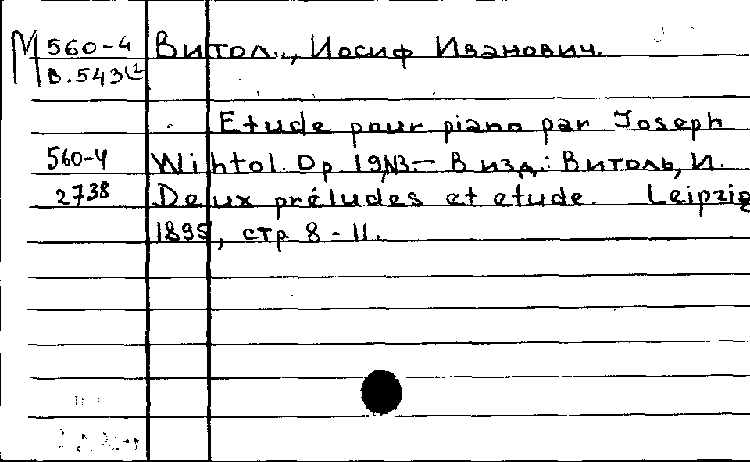 М 560-4 Витол., Иосиф Иванович.
В.543
Etude pour piano par Joseph
560-4 Wihtol. Op. 19,N3.- В изд.: Витоль, И.
2738 Deux préludes et etude. Leipzig
1895, стр 8-11.